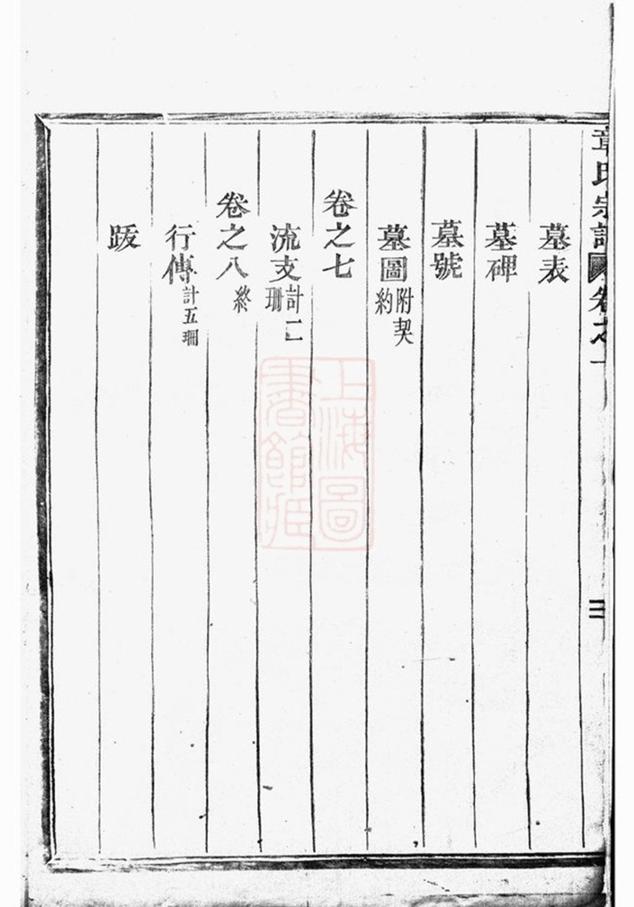 章氏宗譜 卷之一
三
墓表
墓碑
墓號
墓圖附契約
卷之七
流支計二珊
卷之八終
行傳計五珊
跋
上海圖書館藏